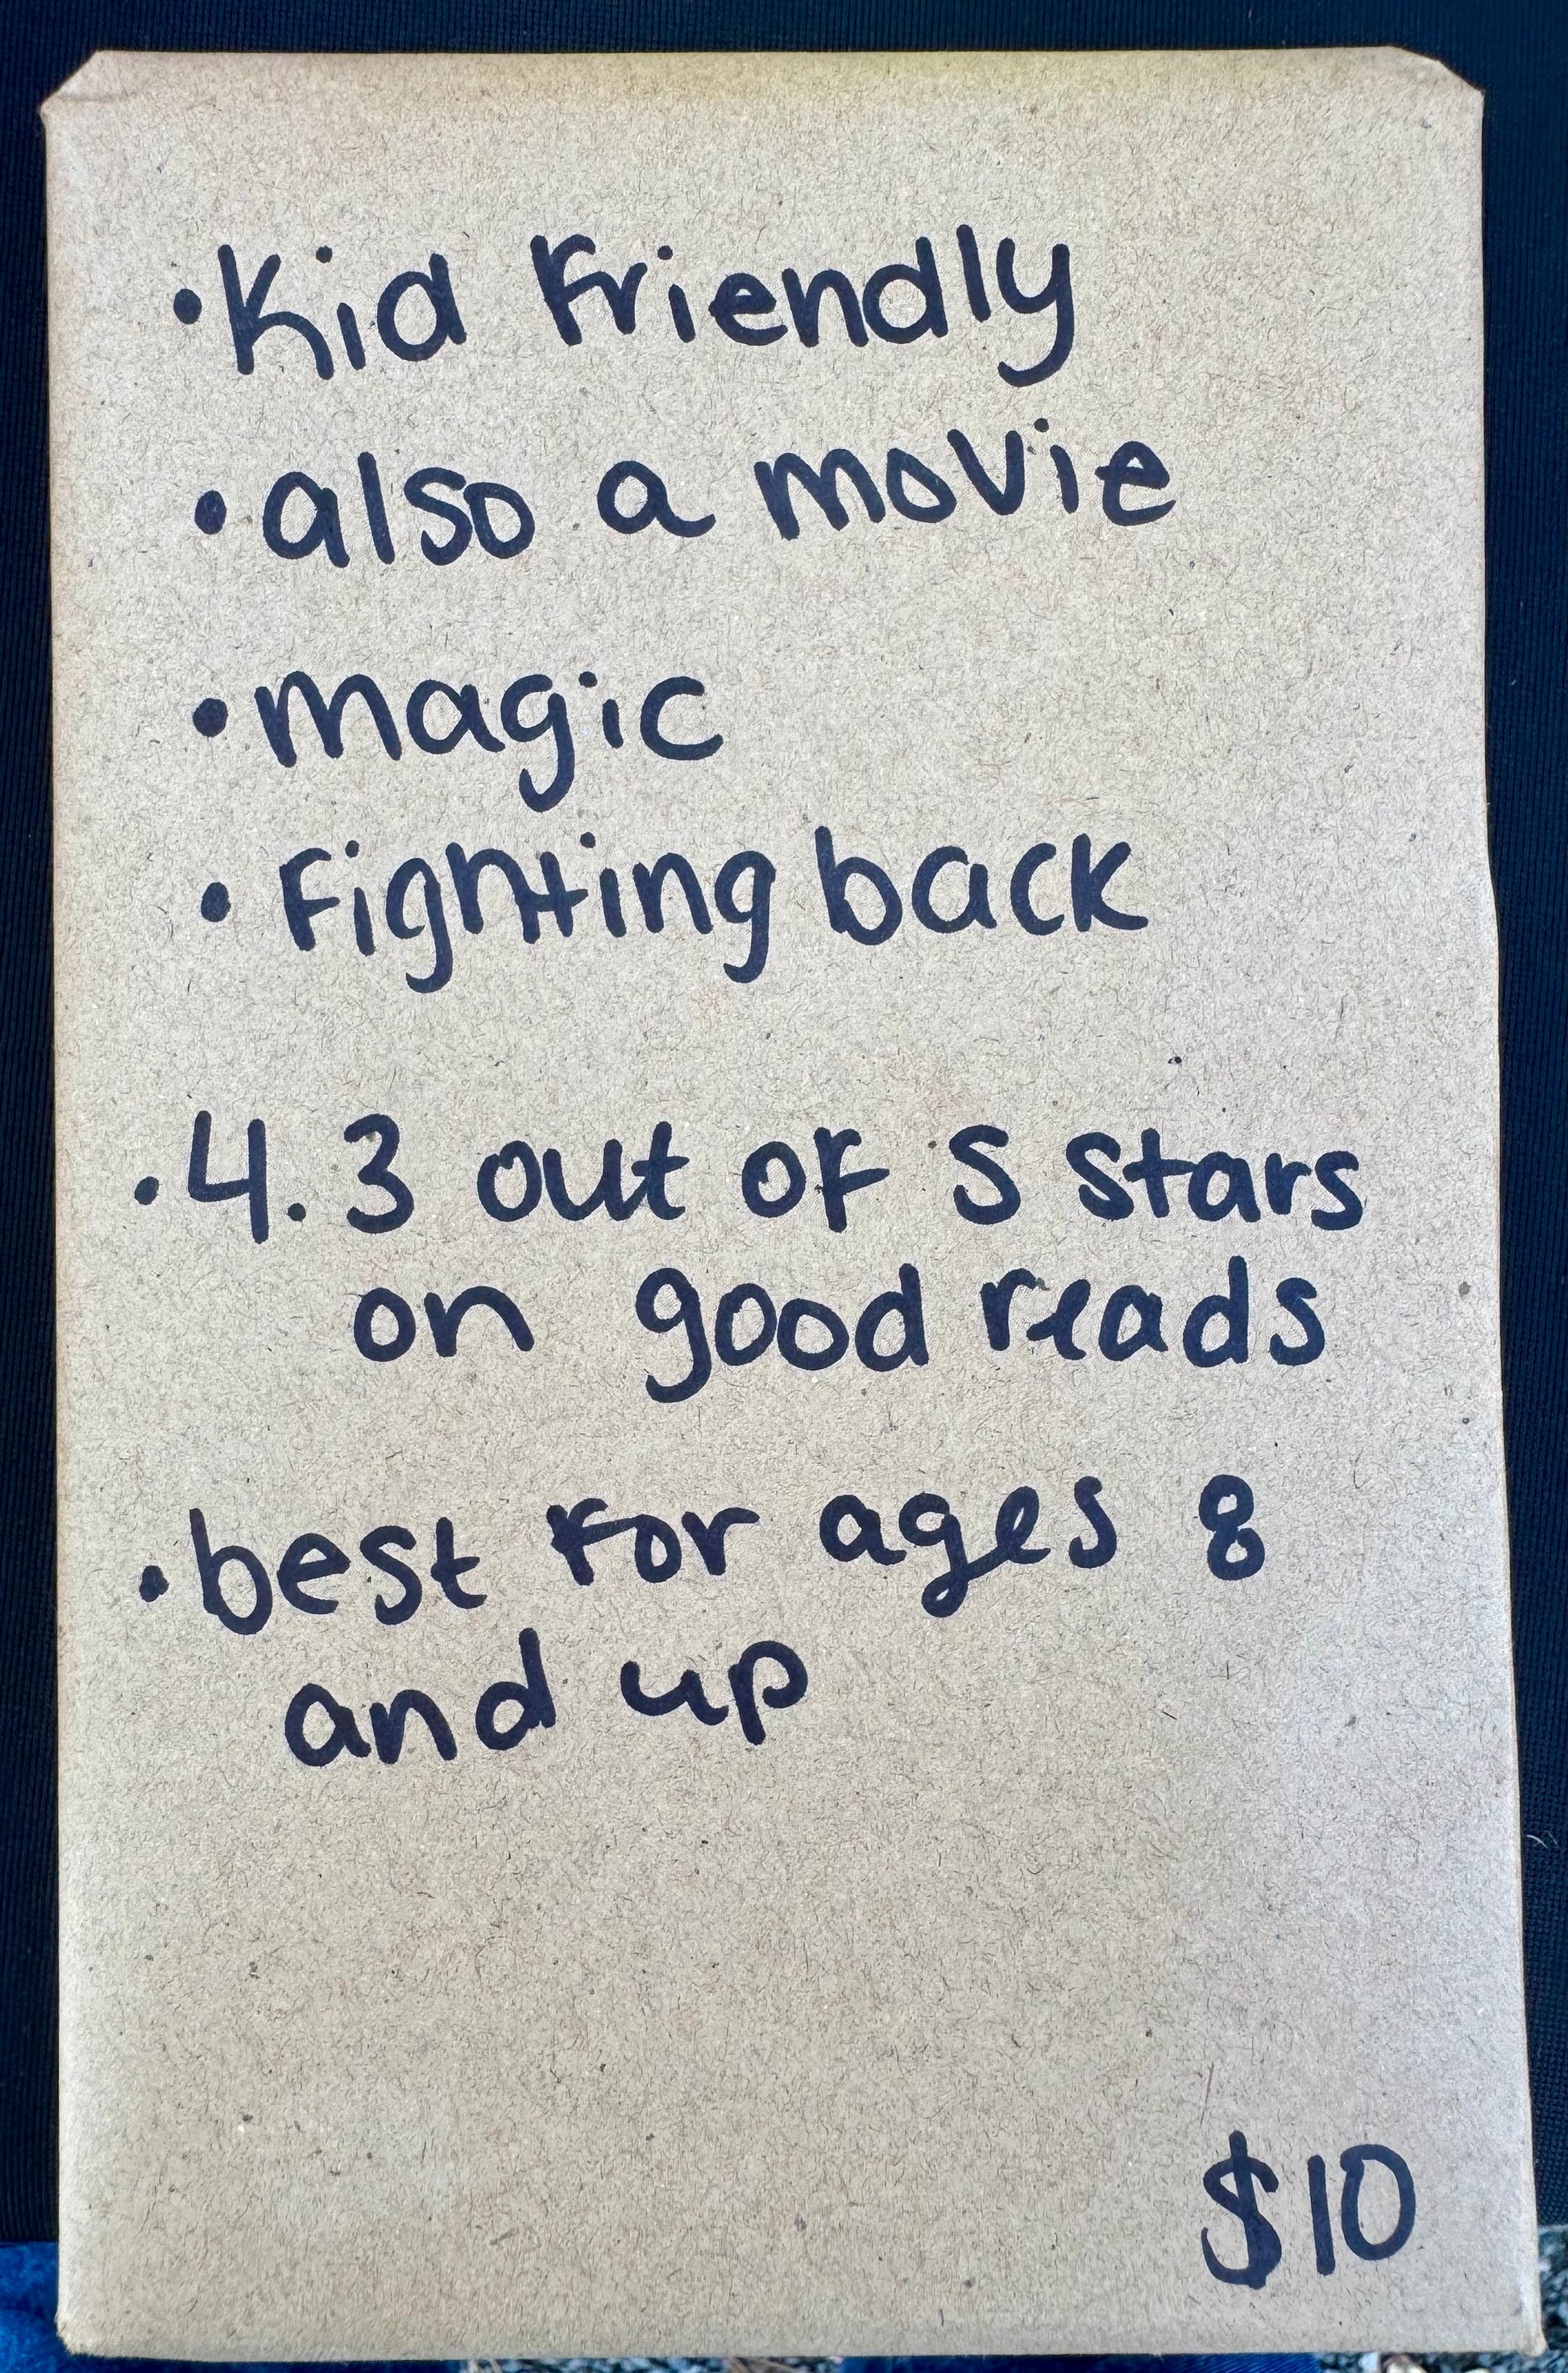 • Kid Friendly
• also a movie
• magic
• Fighting back
• 4.3 out of 5 stars
on good reads
• best for ages 8
and up
$10